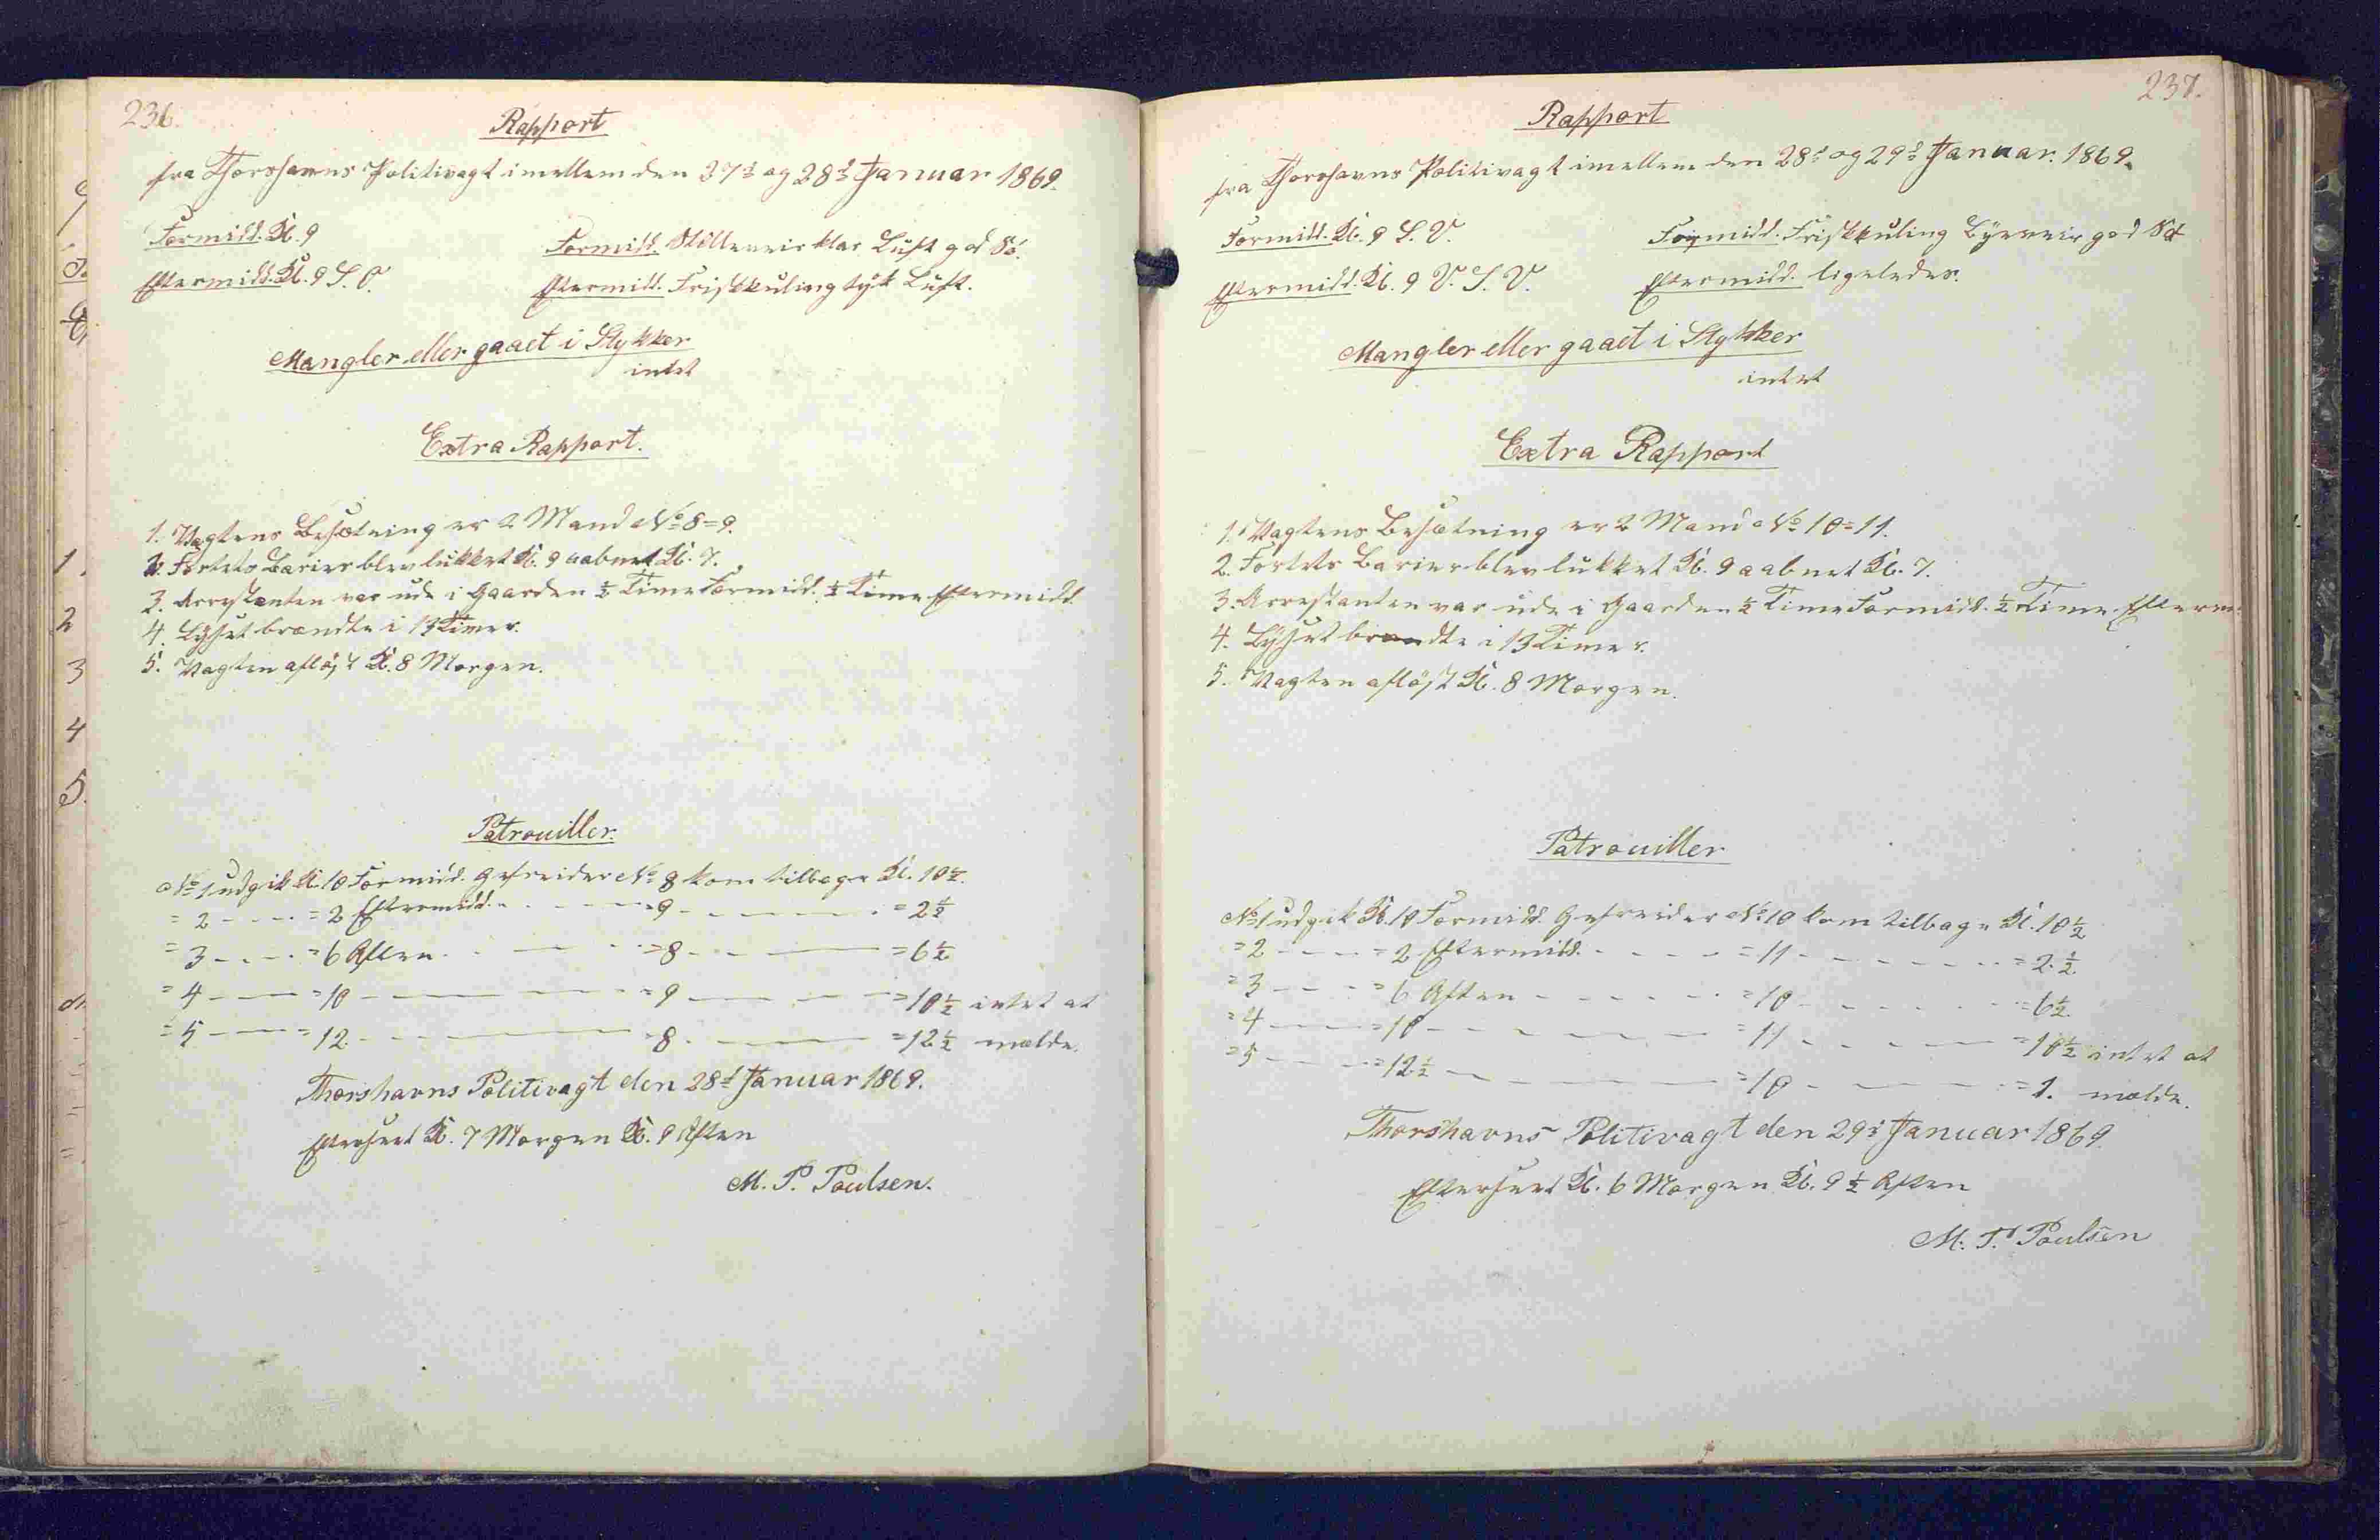 236.
Rapport
fra Thorshavns Politivagt imellem den 27d og 28d Januar 1869.
Formidd. Kl. 9
Formidd. Stilleveir klar Luft god Sö.
Eftermidd. Kl. 9 S. O.
Eftermidd. Friskkuling tyk Luft.
Mangler eller gaaet i Stykker
intet
Extra Rapport.
1. Vagtens Besætning er 2 Mand No 8=9.
2. Fortets Barier blev lukket Kl. 9 aabnet Kl. 7.
3. Arrestanten var ude i Gaarden ½ Time Formidd. ½ Time Eftermidd.
4. Lyset brændte i 13 Timer.
5. Vagten aflöst Kl. 8 Morgen.
Patrouiller.
No 1 udgik Kl. 10 Formidd. Gefreider No 8 kom tilbage Kl. 10½.
= 2 - - - = 2 Eftermidd. - - - = 9 - - - = 2½
= 3 - - - = 6 Aften - - - = 8 - - - = 6½
= 4 - - - = 10 - - - = 9 - - - = 10½ intet at
= 5 - - - = 12 - - - = 8 - - - = 12½ melde.
Thorshavns Politivagt den 28d Januar 1869.
Efterseet Kl. 7 Morgen Kl. 9 Aften
M. P. Poulsen.
237.
Rapport
fra Thorshavns Politivagt imellem den 28d og 29d Januar. 1869.
Formidd. Kl. 9 S. V.
Formidd. Friskkuling Byeveir god Sö
Eftermidd. Kl. 9 V. S. V.
Eftermidd. ligeledes.
Mangler eller gaaet i Stykker
intet
Extra Rapport
1. Vagtens Besætning er 2 Mand No 10=11.
2. Fortets Barier blev lukket Kl. 9 aabnet Kl. 7.
3. Arrestanten var ude i Gaarden ½ Time Formidd. ½ Time Efterm:
4. Lyset brændte i 13 Timer.
5. Vagten aflöst Kl. 8 Morgen.
Patrouiller
No 1 udgik Kl. 10 Formidd. Gefreider No 10 kom tilbage Kl. 10½
= 2 - - - = 2 Eftermidd. - - - = 11 - - - = 2½
= 3 - - - = 6 Aften - - - = 10 - - - = 6½
= 4 - - - = 10 - - - = 11 - - - = 10½ intet at
= 5 - - - = 12½ - - - = 10 - - - = 1. melde.
Thorshavns Politivagt den 29d Januar 1869.
Efterseet Kl. 6 Morgen Kl. 9½ Aften
M. P. Poulsen